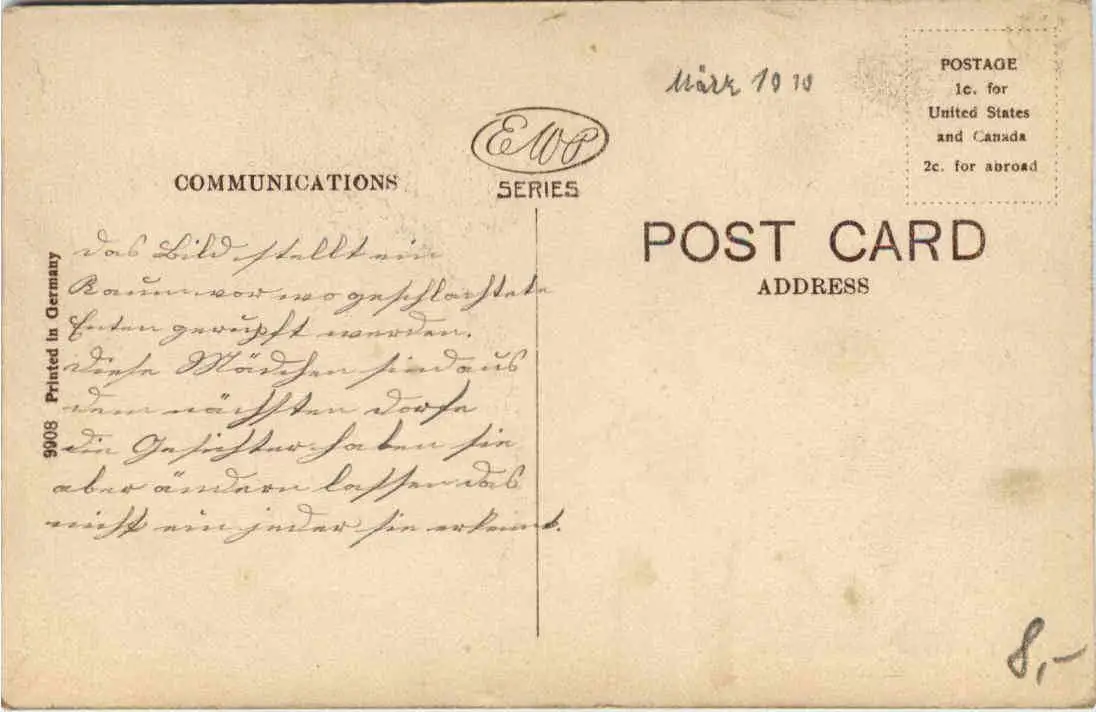 März 1910
POSTAGE
1c. for
United States
and Canada
2c. for abroad
EWP
SERIES
COMMUNICATIONS
POST CARD
ADDRESS
9908 Printed in Germany
das Bild stellt ein
Raum vor wo geschlachtete
Enten gerupft werden.
diese Mädchen sind aus
dem nächsten dorfe
die Gesichter haben sie
aber ändern lassen das
nicht ein jeder sie erkennt.
8,-